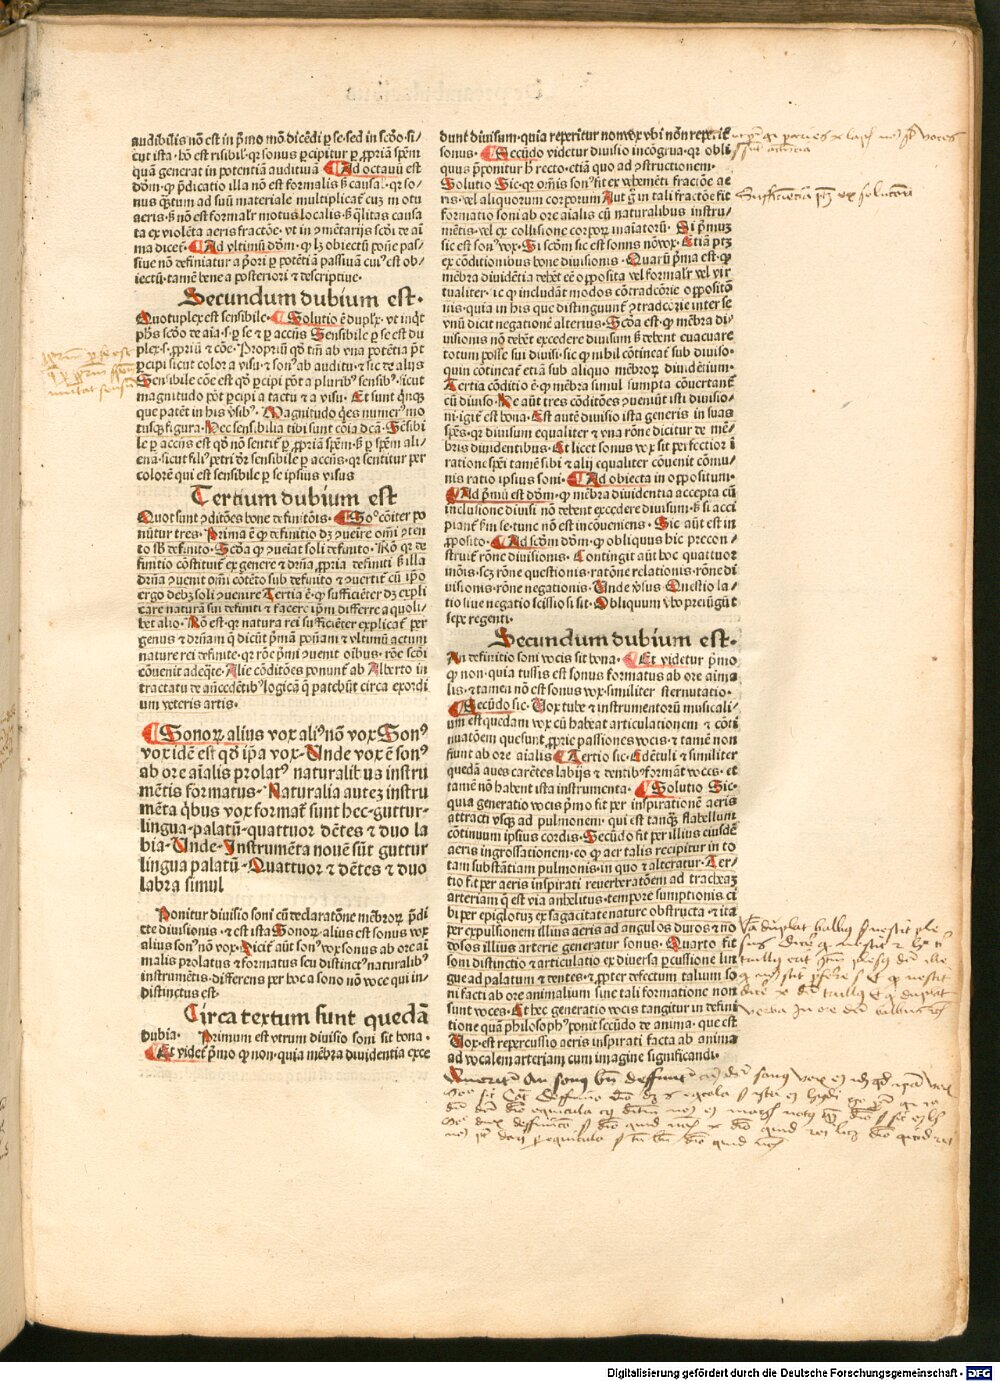 audibilis nō est in p̄mo mō dicēdi ꝑ se sed in scd̄o. si/
cut ista. hō est risibil'. qr sonus ꝑcipitur ꝑ ꝓpriā spēm
quā generat in potentiā auditiuā Ad octauū est
dōm. ꝙ p̄dicatio illa nō est formalis ꝫ causal'. qr so/
nus q̄ꝫtum ad suū materiale multiplicat' cuꝫ motu
aeris. ꝫ nō est formalr̄ motus localis. ꝫ q̄litas causa
ta ex violēta aeris fractōe. vt in ꝯmētarijs scd̄i de ai
ma dicet'. Ad vltimū dōm. ꝙ lꝫ obiectū pōne pas/
siue nō definiatur a p̄ori ꝑ potētiā passiuā cui' est ob/
iectū. tamē bene a posteriori ⁊ descriptiue.
Secundum dubium est.
Quotuplex est sensibile. Solutio ē duplx. vt inq̄t
ph̄s scd̄o de aīa. s. ꝑ se ⁊ ꝑ accn̄s Sensibile ꝑ se est du
plex. s. ꝓpriū ⁊ cōe. Propriū qd̄ tm̄ ab vna potētia pōt
ꝑcipi sicut color a visu. ⁊ son' ab auditu. ⁊ sic de alijs
Sensibile cōe est qd̄ ꝑcipi pōt a plurib' sensib'. sicut
magnitudo pōt ꝑcipi a tactu ⁊ a visu. Et sunt q̄nqꝫ
que patēt in his v̄sib'. Magnitudo q̄es numer' mo
tusqꝫ figura. Nec sensibilia tibi sunt cōia dcā. Sēsibi
le ꝑ accn̄s est qd̄ nō sentit' ꝑ ꝓpriā spēm. ꝫ ꝑ spēm ali/
enā. sicut fili' petri dr̄ sensibile ꝑ accn̄s. qr sentitur per
colorē qui est sensibile ꝑ se ipsius visus
Tertium dubium est
Quot sunt ꝯditōes bone definitōis. So° cōiter po
nūtur tres. Prima ē ꝙ definitio dꝫ ꝯueire om̄i ꝯten
to sb̄ definito. Scd̄a ꝙ ꝯueiat soli definito. Rō qr de
finitio cōstituit' ex genere ⁊ dr̄na ꝓpria definiti ꝫ illa
dr̄na ꝯuenit om̄i cōtēto sub definito ⁊ ꝯuertit' cū ip̄o
ergo debꝫ soli ꝯuenire Tertia ē. ꝙ sufficiēter dꝫ expli
care naturā sui definiti ⁊ facere ip̄m differre a quoli/
bet alio. Rō est. qr natura rei sufficiēter explicat' per
genus ⁊ dr̄nam q̄ dicūt p̄mā ponam ⁊ vltimū actum
nature rei definite. qr rōe p̄mi ꝯuenit oībus. rōe scd̄i
cōuenit adeq̄te. Alie cōditōes ponunt' ab Alberto in
tractatu de an̄cedētib' logicā q̄ patebūt circa exordi
um veteris artis.
Sonoꝝ alius vox ali' nō vox Son'
vox idē est qd̄ ip̄a vox. Unde vox ē son'
ab ore aīalis prolat' naturalibus instru
mētis formatus. Naturalia auteꝫ instru
mēta q̄bus vox format' sunt hec. guttur.
lingua. palatū. quattuor dētes ⁊ duo la
bia. Unde. Instrumēta nouē sūt guttur
lingua palatū. Quattuor ⁊ dētes ⁊ duo
labra simul
Ponitur diuisio soni cū declaratōne mēbroꝝ p̄di
cte diuisionis. ⁊ est ista Sonoꝝ. alius est sonus vox
alius son' nō vox. Dicit' aūt son' vox sonus ab ore ai
malis prolatus ⁊ formatus seu distinct' naturalib'
instrumētis. differens per hoc a sono nō voce qui in/
distinctus est.
Circa textum sunt quedā
dubia. Primum est vtrum diuisio soni sit bona.
Et videt' p̄mo ꝙ non. quia mēbra diuidentia exce
dunt diuisum. quia reperitur non vox vbi nōn reperit'
sonus. Secūdo videtur diuisio incōgrua. qr obli
quus p̄ponitur hͦ recto. etiā quo ad ꝯstructionem.
Solutio Sic. qr om̄is son' fit ex vehemēti fractōe ae
ris. vel aliquorum corporum Aut g° in tali fractōe fit
formatio soni ab ore aīalis cū naturalibus instru/
mētis. vel ex collisione corpoꝝ inaiatoꝝ. Si p̄muꝫ
sic est son' vox. Si scd̄m sic est sonus nō vox. Etiā ptꝫ
ex cōditionibus bone diuisionis. Quarū p̄ma est. ꝙ
mēbra diuidētia debēt eē opposita vel formalr̄ vel vir
tualiter. ic̄ ꝙ includāt modos cōtradcōrie oppositōn
nis. quia in his que distinguunt' ꝯtradcōrie inter se
vnū dicit negationē alterius. Scd̄a est. ꝙ mēbra di/
uisionis nō debēt excedere diuisum ꝫ debent euacuare
totum posse sui diuisi. sic ꝙ nihil cōtineat' sub diuiso.
quin cōtineat' etiā sub aliquo mēbroꝝ diuidētium.
Tertia cōditio ē. ꝙ mēbra simul sumpta cōuertant'
cū diuiso. Ne aūt tres cōditōes ꝯueniūt isti diuisio/
ni. igit' est bona. Est autē diuisio ista generis in suas
spēs. qr diuisum equaliter ⁊ vna rōne dicitur de mē/
bris diuidentibus. Et licet sonus vox sit perfectior ī
ratione spēi tamē sibi ⁊ alij equaliter cōuenit cōmu/
nis ratio ipsius soni. Ad obiecta in oppositum.
Ad p̄mū est dōm. ꝙ mēbra diuidentia accepta cū
inclusione diuisi nō debent excedere diuisum. ꝫ si acci
piant' ꝫm se. tunc nō est incōueniens. Sic aūt est in
ꝓposito. Ad scd̄m dōm. ꝙ obliquus hic precon/
struit' rōne diuisionis. Contingit aūt hoc quattuor
mōis. scꝫ rōne questionis. ratōne relationis. rōne di
uisionis. rōne negationis. Unde v̄sus. Questio la/
tio siue negatio scissio si sit. Obliquum v̄bo preiūgūt
sepe regenti.
Secundum dubium est.
An definitio soni vocis sit bona. Et videtur p̄mo
ꝙ non. quia tussis est sonus formatus ab ore aīma
lis. ⁊ tamen nō est sonus vox. similiter sternutatio.
Secūdo sic. Vox tube ⁊ instrumentorū musicali/
um est quedam vox cū habeat articulationem ⁊ cōti
nuatōem que sunt ꝓprie passiones vocis. ⁊ tamē non
fiunt ab ore aīalis Tertio sic. Edētuli ⁊ similiter
quedā aues carētes labijs ⁊ dentib' formāt voces. et
tamē nō habent ista instrumenta. Solutio Sic.
quia generatio vocis p̄mo fit per inspirationē aeris
attracti vsqꝫ ad pulmonem. qui est tanqꝫ flabellum
cōtinuum ipsius cordis. Secūdo fit per illius eiusdē
aeris ingrossationem. eo ꝙ aer talis recipitur in to
tam substātiam pulmonis. in quo ⁊ alteratur. Ter/
tio fit per aeris inspirati reuerberatōem ad tracheaꝫ
arteriam q̄ est via anhelitus. tempore sumptionis ci
bi per epiglotuꝫ ex sagacitate nature obstructa. ⁊ ita
per expulsionem illius aeris ad angulos duros ⁊ nō
dosos illius arterie generatur sonus. Quarto fit
soni distinctio ⁊ articulatio ex diuersa ꝑcussione lin
gue ad palatum ⁊ dentes. ⁊ ꝓpter defectum talium so
ni facti ab ore animalium sine tali formatione non
sunt voces. Et hec generatio vocis tangitur in defini
tione quā philosoph' ponit secūdo de anima. que est
Vox est repercussio aeris inspirati facta ab anima
ad vocalem arteriam cum imagine significandi.
Digitalisierung gefördert durch die Deutsche Forschungsgemeinschaft - DFG